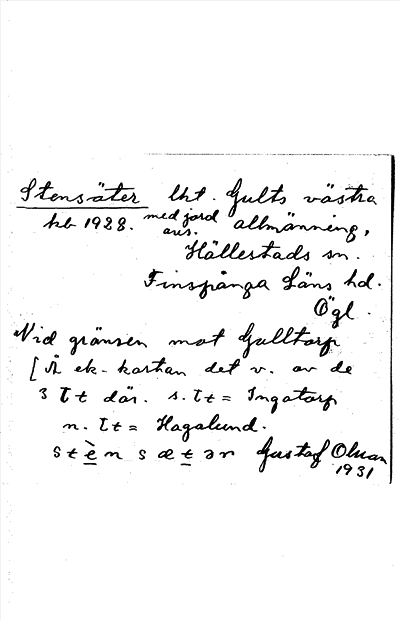 Stensäter lht. Gults västra
kb 1928. med jord allmänning,
avs.
Hällestads sn.
Finspånga Läns hd.
Ögl.
Vid gränsen mot Gulltorp
[Å ek-kartan det v. av de
3 Lt där. s. Lt = Ingatorp
n. Lt = Hagalund.
stènsætər Gustaf Olsson
1931